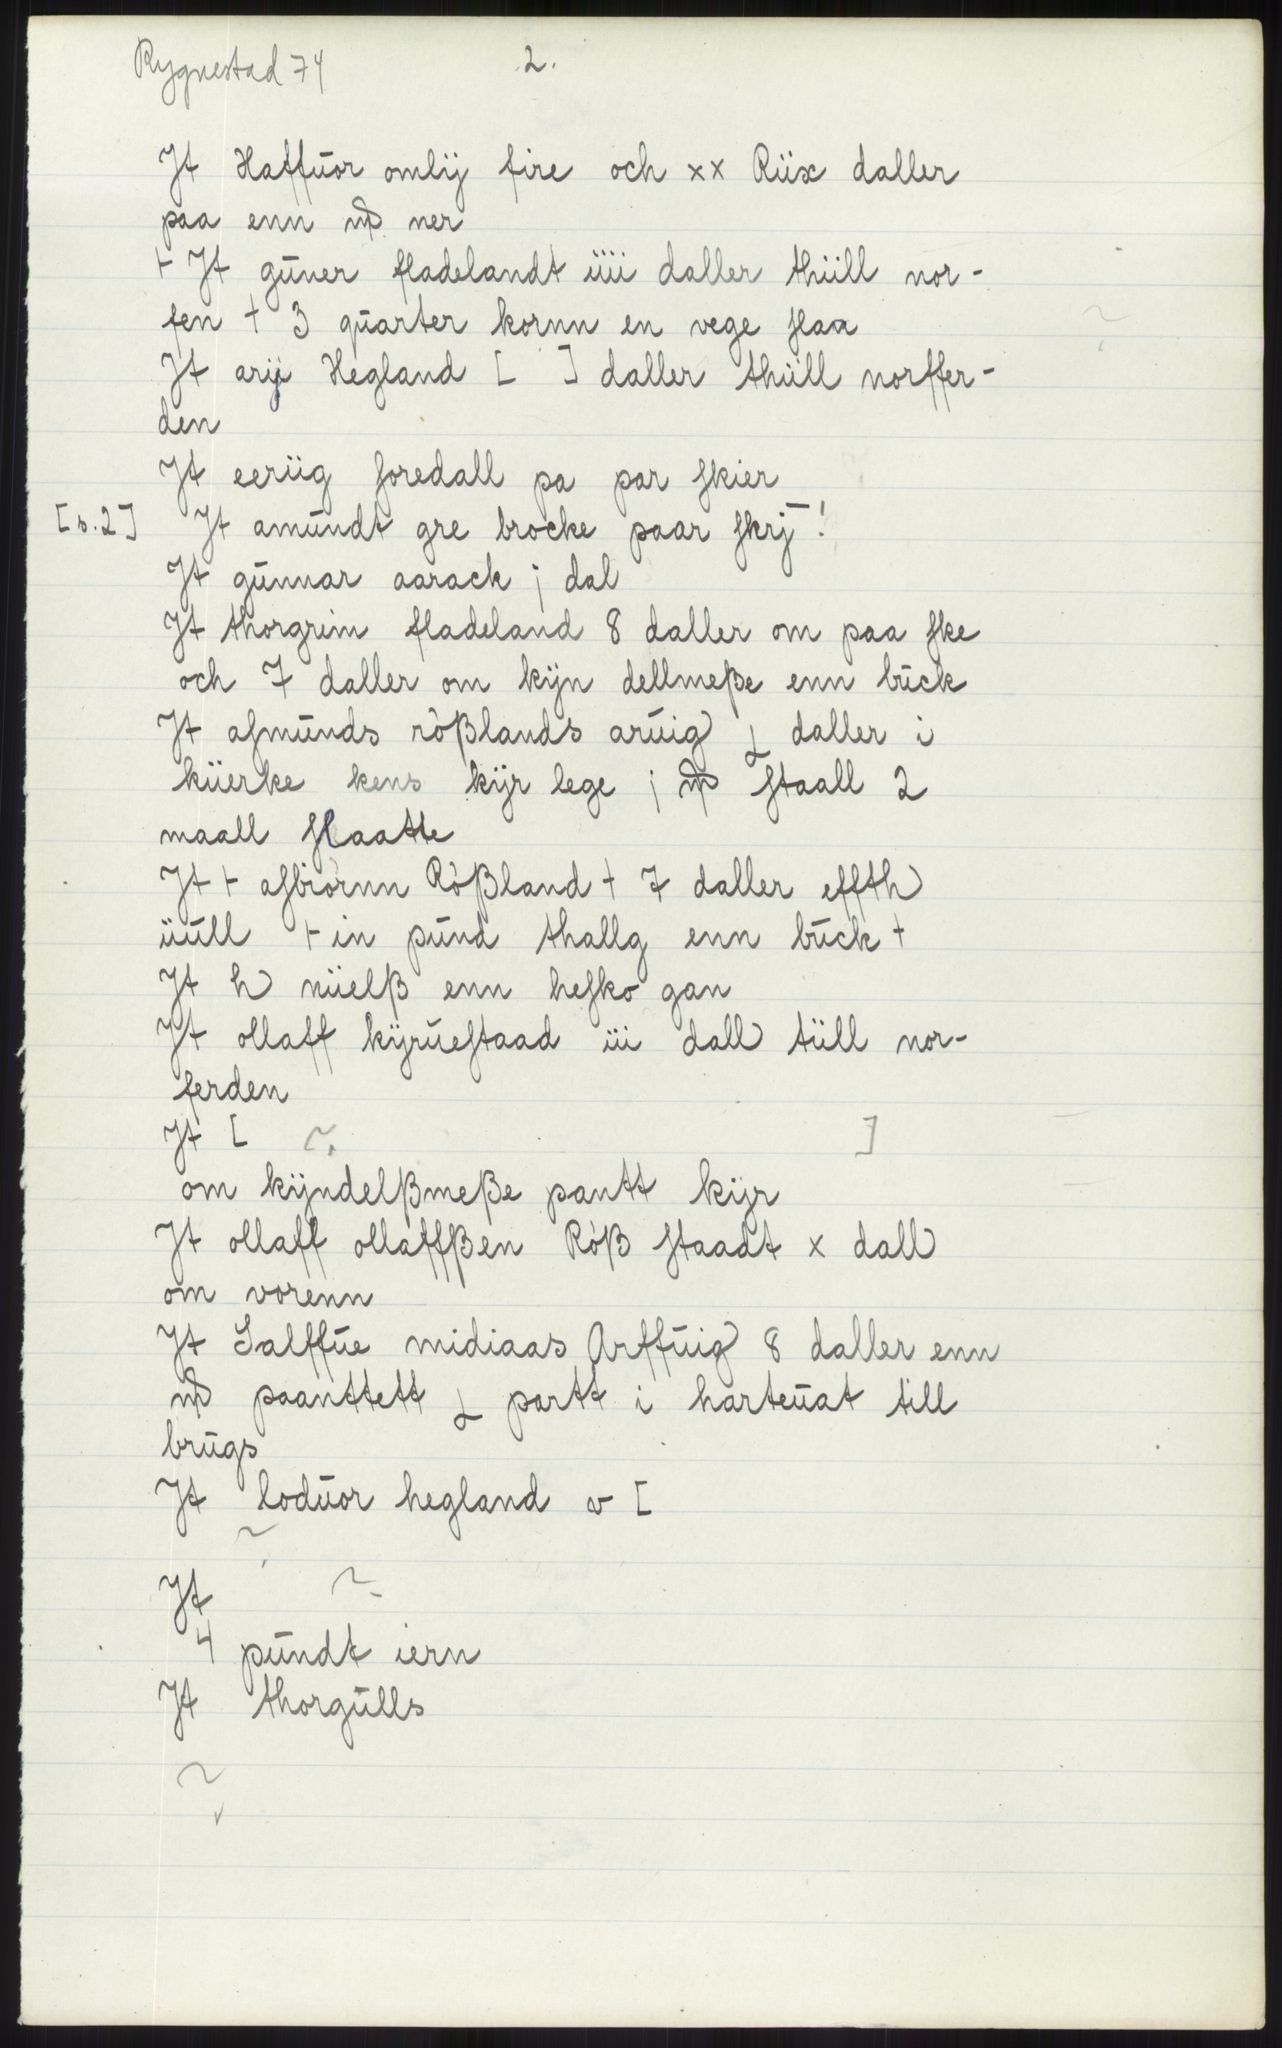 Rygnestad 74
2.
Jt Haffuor omlÿ fire och xx Riix daller
paa enn ner
+ Jt guner fladelandt iiii daller thiill nor-
fen + 3 quarter kornn en vege flaa
Jt arij Hegland [ ] daller thiill norffer-
den
Jt eeriig foredall pa par skier
[s. 2] Jt amundt gre brocke paar skrj !
Jt gunnar aarack j dal
Jt thorgrim fladeland 8 daller om paa ske
och 7 daller om kÿn dellmeße enn buck
Jt asmunds rößlands aruig daller i
küerke kens kÿr lege j staall 2
maall slaatte
Jt + asbiornn Rößland + 7 daller effth
üull + in pund thallg enn buck +
Jt h niielß enn hesko gan
Jt ollaff kÿruestaad iii dall tüll nor-
ferden
Jt [ ]
om kÿndelßmeße pantt kÿr
Jt ollaff ollaffßen Röß staadt x dall
om vorenn
Jt Salffue midiaas Arffuig 8 daller enn
paanttett partt i harteuat till
brugs
Jt loduor hegland v [
Jt
4 pundt iern
Jt thorgulls